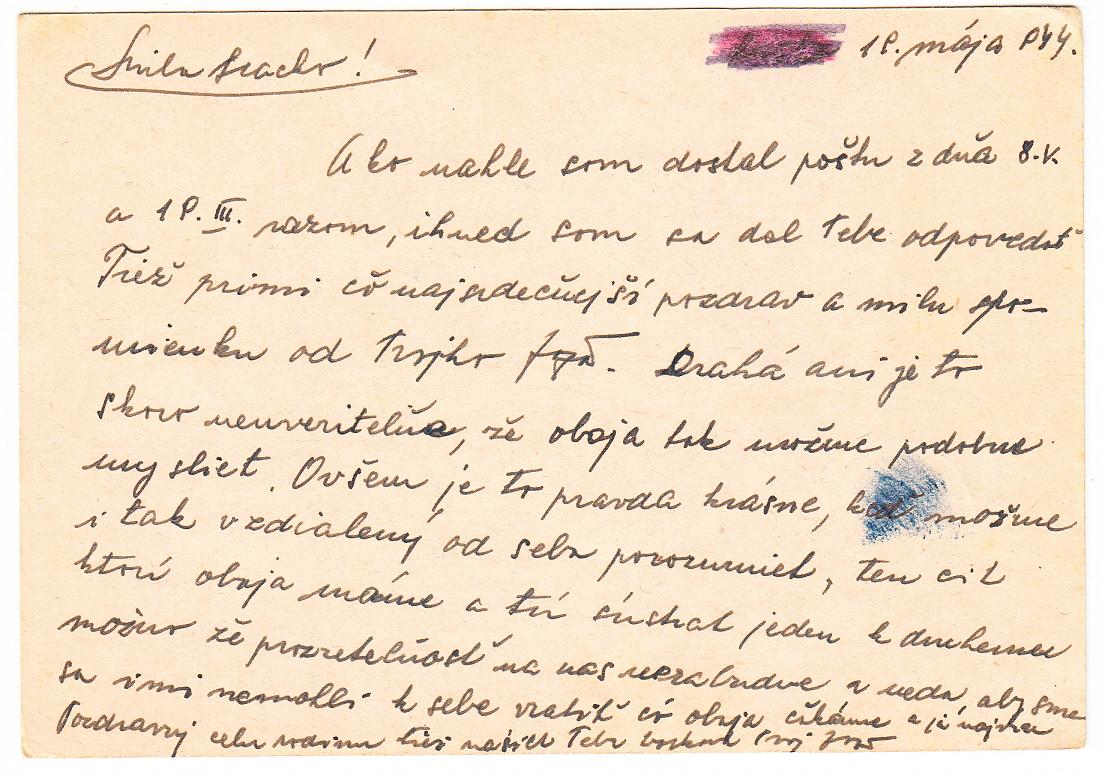 18. mája 944.
Ako nahle som dostal poštu z dňa 8.V.
a 18. III. razom, ihned som sa dal Tebe odpovedať
Tiež primi čo najsrdečnejší pozdrav a milu spo-
mienku od Tvojho. Drahá ani je to
skoro neuveritelňe, že oboja tak možme podobne
myslieť. Ovšem je to pravda krásne, keď možme
i tak vzdialený od seba porozumieť, ten cit
ktorí oboja máme a tú jeden k druhemu
možno že prozretelňosť na nas nezabudne a nedá, aby sme
sa i mi nemohli k sebe vratiť čo oboja čakáme a je
Pozdravuj celu rodinu Tebe Tvoj